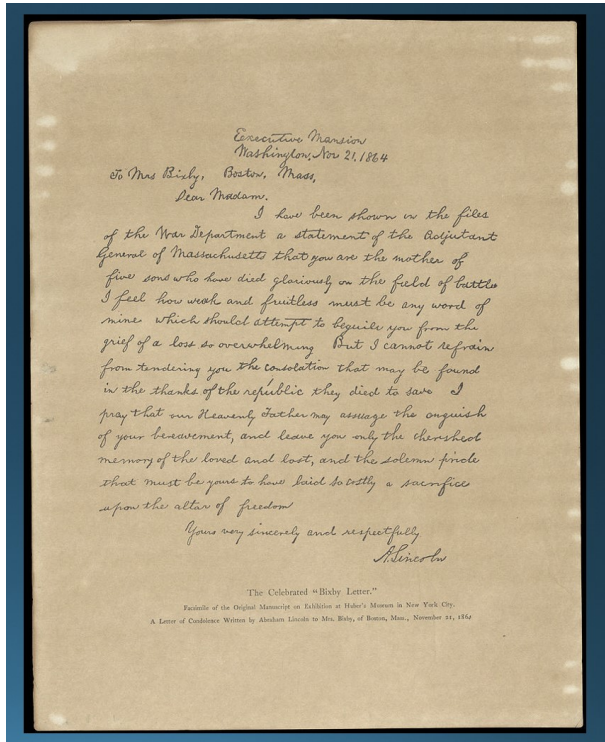 Executive Mansion
Washington, Nov 21, 1864
To Mrs Bixby, Boston, Mass,
Dear Madam.
I have been shown in the files
of the War Department a statement of the Adjutant
General of Massachusetts that you are the mother of
five sons who have died gloriously on the field of battle
I feel how weak and fruitless must be any word of
mine which should attempt to beguile you from the
grief of a loss so overwhelming But I cannot refrain
from tendering you the consolation that may be found
in the thanks of the republic they died to save I
pray that our Heavenly Father may assuage the anguish
of your bereavement, and leave you only the cherished
memory of the loved and lost, and the solemn pride
that must be yours to have laid so costly a sacrifice
upon the altar of freedom
Yours very sincerely and respectfully
A. Lincoln
The Celebrated "Bixby Letter."
Facsimile of the Original Manuscript on Exhibition at Huber's Museum in New York City.
A Letter of Condolence Written by Abraham Lincoln to Mrs. Bixby, of Boston, Mass., November 21, 1864